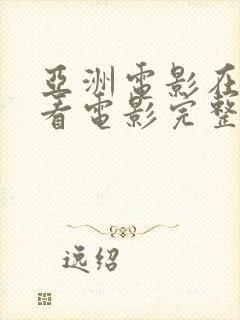 亞洲電影在
看電影完整
逸绍